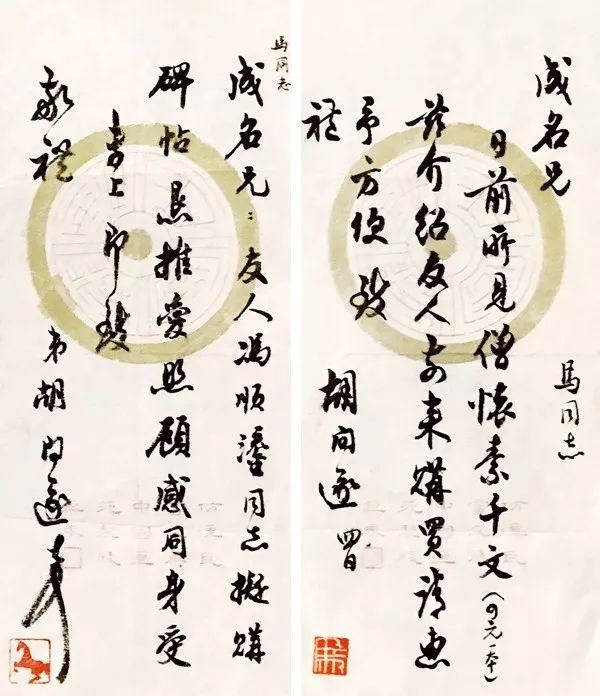 馬同志
成名兄：友人馮順鎏同志擬購
碑帖是推愛照顧感同身受
專上即致
敬禮
弟胡問遂
成名兄
日前所見僧懷素千文（四元一本）
茲介紹友人前來購買請惠
予方便致
禮
馬同志
胡問遂